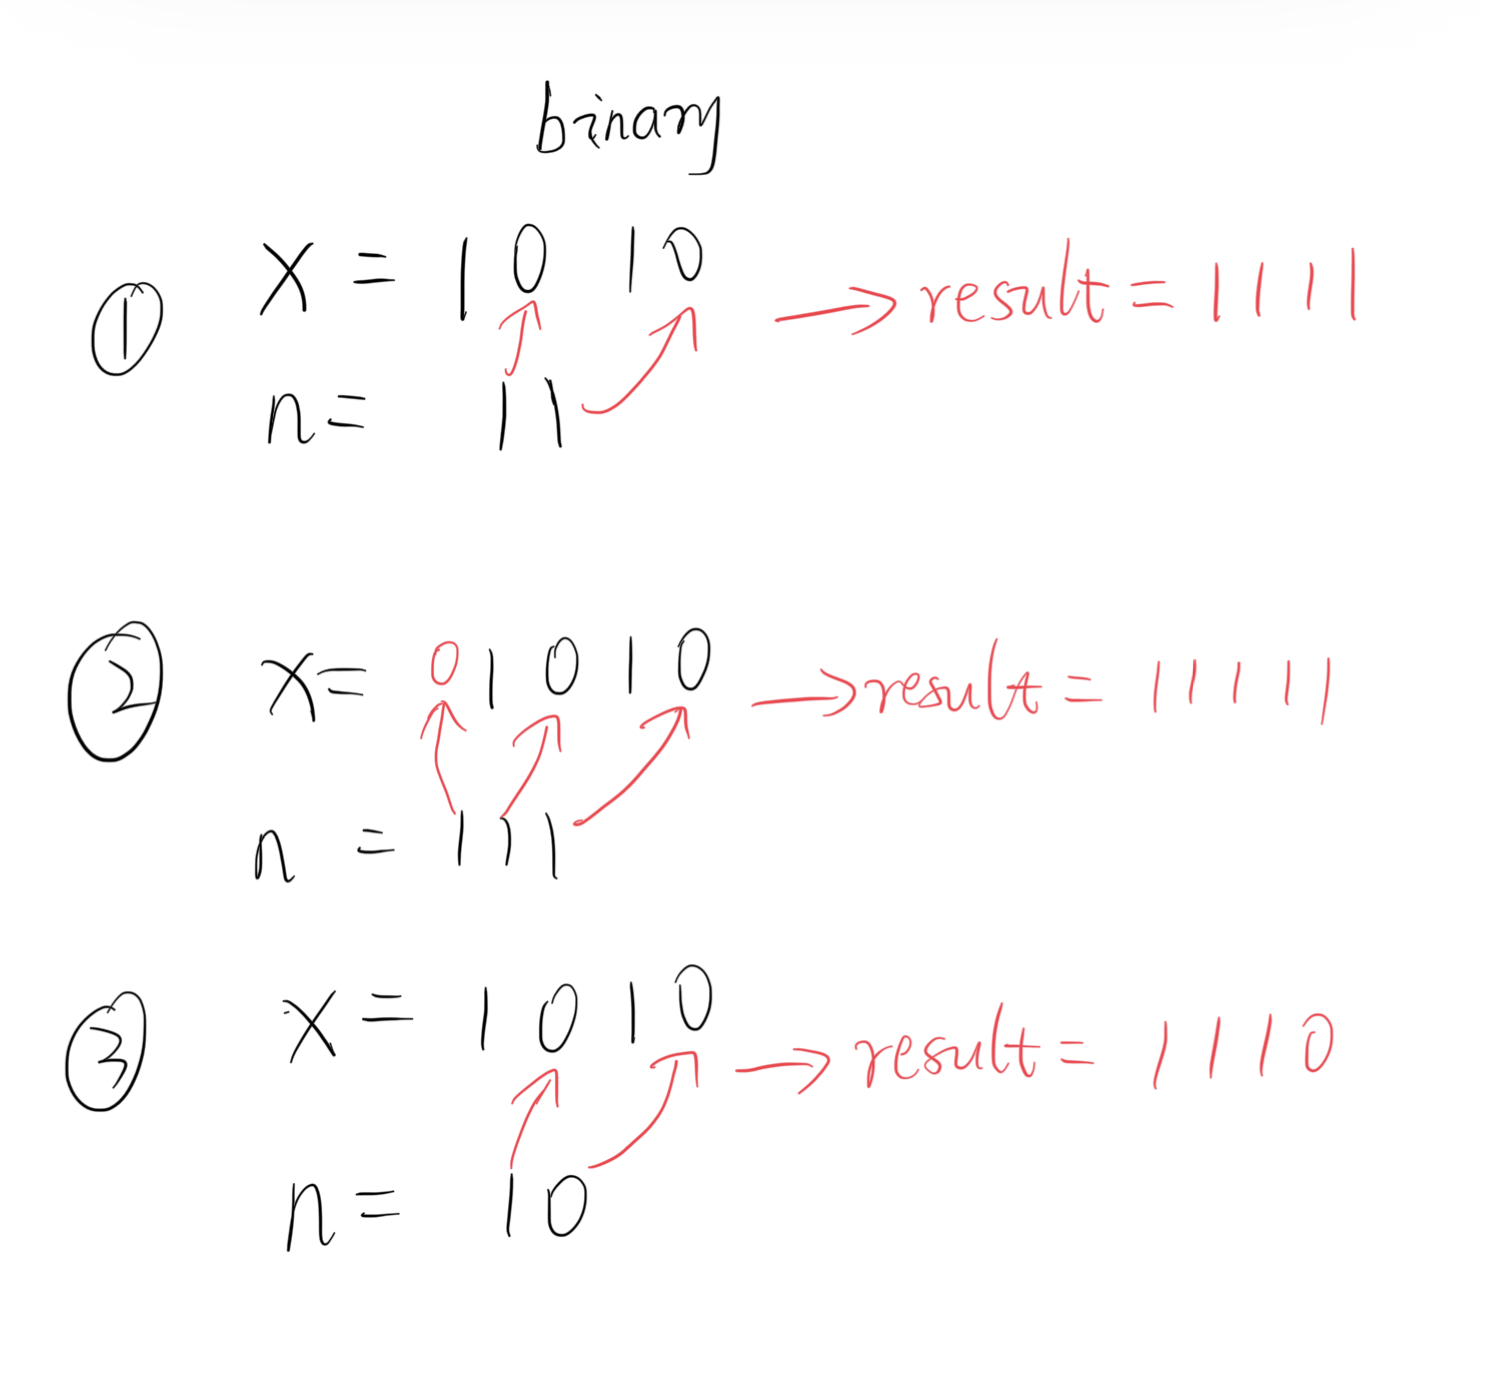 binary
① x = 1 0 1 0 → result = 1 1 1 1
n = 1 1
② x = 0 1 0 1 0 → result = 1 1 1 1 1
n = 1 1 1
③ x = 1 0 1 0 → result = 1 1 1 0
n = 1 0